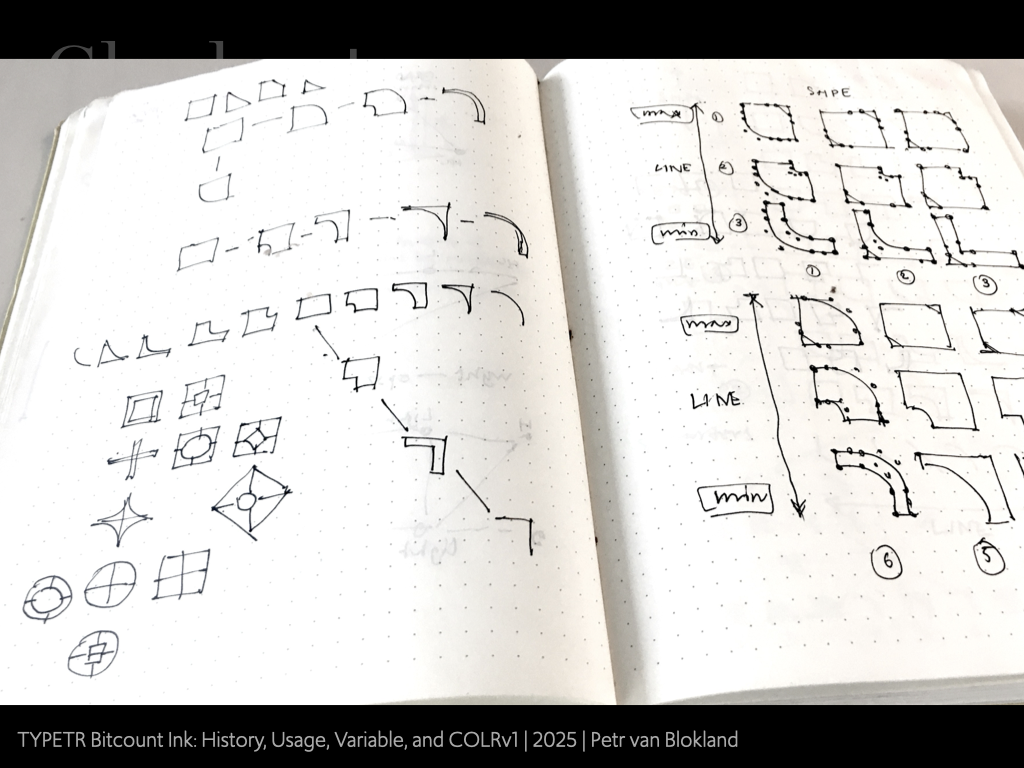 SHPE
max
①
LINE
②
min
③
① ② ③
max
LINE
min
⑥ ⑤
TYPETR Bitcount Ink: History, Usage, Variable, and COLRv1 | 2025 | Petr van Blokland